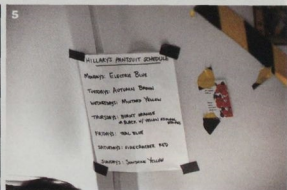 5
HILLARY'S PANTSUIT SCHEDULE
MONDAYS: ELECTRIC BLUE
TUESDAYS: AUTUMN BROWN
WEDNESDAYS: MUSTARD YELLOW
THURSDAYS: BURNT ORANGE
& BLACK W/ YELLOW
FRIDAYS: TEAL BLUE
SATURDAYS: FIRECRACKER RED
SUNDAYS: SUNSHINE YELLOW